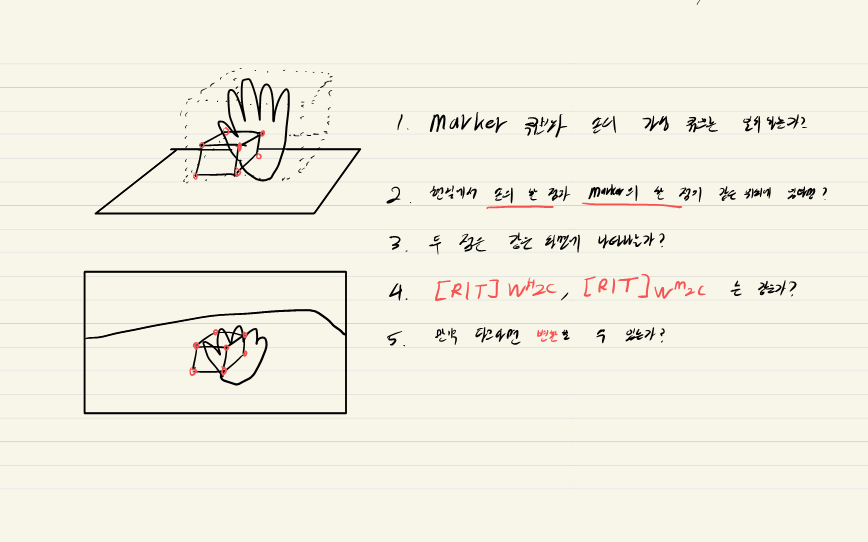 1. Marker 큐브와 손의 가상 큐브는 보이는가?
2. 현실에서 손의 한 점과 marker의 한 점이 같은 위치에 있다면?
3. 두 점은 같은 화면에 나타나는가?
4. [R|T] W^H2C, [R|T] W^M2C 는 같은가?
5. 만약 다르다면 변환할 수 있는가?